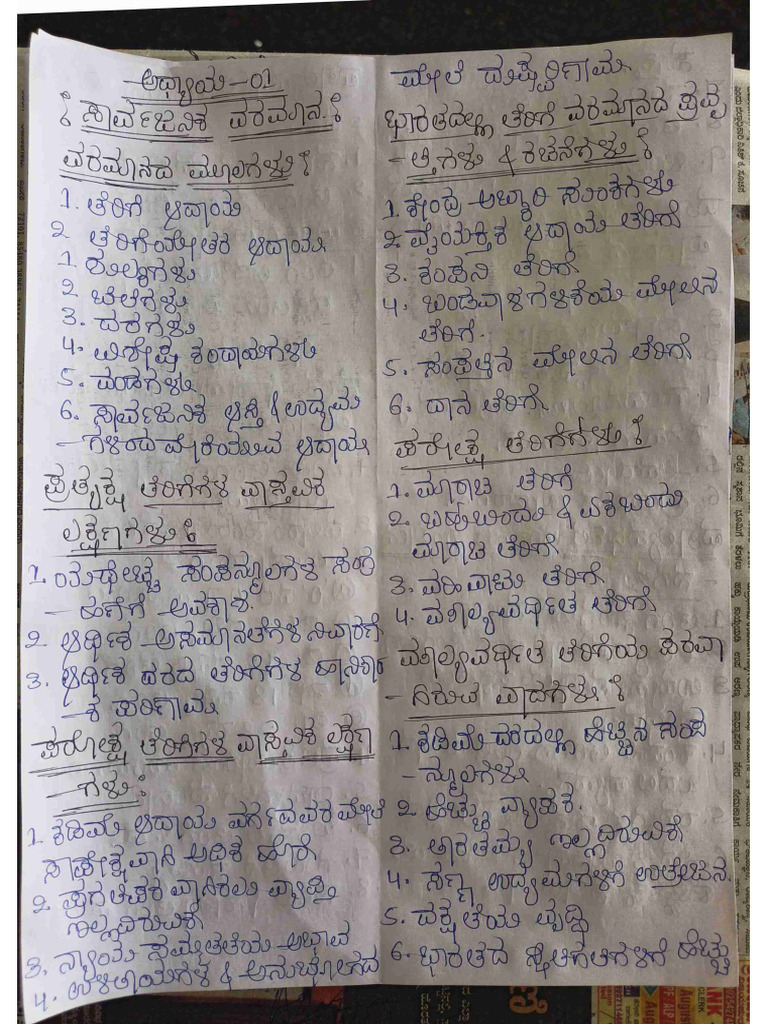 ಅಧ್ಯಾಯ - 01
: ಸಾರ್ವಜನಿಕ ವರಮಾನ :
ವರಮಾನದ ಮೂಲಗಳು :
1. ತೆರಿಗೆ ಆದಾಯ
2. ತೆರಿಗೆಯೇತರ ಆದಾಯ
1. ಶುಲ್ಕಗಳು
2. ಬೆಲೆಗಳು
3. ದರಗಳು
4. ವಿಶೇಷ ಕಂದಾಯಗಳು
5. ದಂಡಗಳು
6. ಸಾರ್ವಜನಿಕ ಆಸ್ತಿ & ಉದ್ಯಮ
- ಗಳಿಂದ ದೊರೆಯುವ ಆದಾಯ
ಪ್ರತ್ಯಕ್ಷ ತೆರಿಗೆಗಳ ವಾಸ್ತವಿಕ
ಲಕ್ಷಣಗಳು :
1. ಯಥೇಚ್ಛ ಸಂಪನ್ಮೂಲಗಳ ಸಂಗ್ರ
- ಹಣೆಗೆ ಅವಕಾಶ.
2. ಆರ್ಥಿಕ ಅಸಮಾನತೆಗಳ ನಿವಾರಣೆ
3. ಆರ್ಥಿಕ ದರದ ತೆರಿಗೆಗಳ ಹಾನಿಕಾರ
- ಕ ಪರಿಣಾಮ
ಪರೋಕ್ಷ ತೆರಿಗೆಗಳ ವಾಸ್ತವಿಕ ಲಕ್ಷಣ
- ಗಳು :
1. ಕಡಿಮೆ ಆದಾಯ ವರ್ಗದವರ ಮೇಲೆ
ಸಾಪೇಕ್ಷವಾಗಿ ಅಧಿಕ ಹೊರೆ
2. ಪ್ರಗತಿಪರವಾಗಿರಲು ವ್ಯಾಪ್ತಿ
ಇಲ್ಲದಿರುವಿಕೆ
3. ನ್ಯಾಯ ಸಮ್ಮತತೆಯ ಅಭಾವ
4. ಉಳಿತಾಯಗಳ & ಅನುಭೋಗದ
ಮೇಲೆ ದುಷ್ಪರಿಣಾಮ
ಭಾರತದಲ್ಲಿ ತೆರಿಗೆ ವರಮಾನದ ಪ್ರವೃ
- ತ್ತಿಗಳು & ರಚನೆಗಳು :
1. ಕೇಂದ್ರ ಅಬ್ಕಾರಿ ಸುಂಕಗಳು
2. ವೈಯಕ್ತಿಕ ಆದಾಯ ತೆರಿಗೆ
3. ಕಂಪನಿ ತೆರಿಗೆ
4. ಬಂಡವಾಳ ಗಳಿಕೆಯ ಮೇಲಿನ
ತೆರಿಗೆ.
5. ಸಂಪತ್ತಿನ ಮೇಲಿನ ತೆರಿಗೆ
6. ದಾನ ತೆರಿಗೆ
ಪರೋಕ್ಷ ತೆರಿಗೆಗಳು :
1. ಮಾರಾಟ ತೆರಿಗೆ
2. ಬಹುಬಿಂದು & ಏಕಬಿಂದು
ಮಾರಾಟ ತೆರಿಗೆ
3. ವಹಿವಾಟು ತೆರಿಗೆ
4. ಮೌಲ್ಯವರ್ಧಿತ ತೆರಿಗೆ
ಮೌಲ್ಯವರ್ಧಿತ ತೆರಿಗೆಯ ಪರವಾ
- ಗಿರುವ ವಾದಗಳು :
1. ಕಡಿಮೆ ದರದಲ್ಲಿ ಹೆಚ್ಚಿನ ಸಂಪ
- ನ್ಮೂಲಗಳು
2. ಹೆಚ್ಚು ವ್ಯಾಪಕ.
3. ತಾರತಮ್ಯ ಇಲ್ಲದಿರುವಿಕೆ
4. ಸಣ್ಣ ಉದ್ಯಮಗಳಿಗೆ ಉತ್ತೇಜನ
5. ದಕ್ಷತೆಯ ವೃದ್ಧಿ
6. ಭಾರತದ ಸ್ಥಿತಿಗತಿಗಳಿಗೆ ಹೆಚ್ಚು